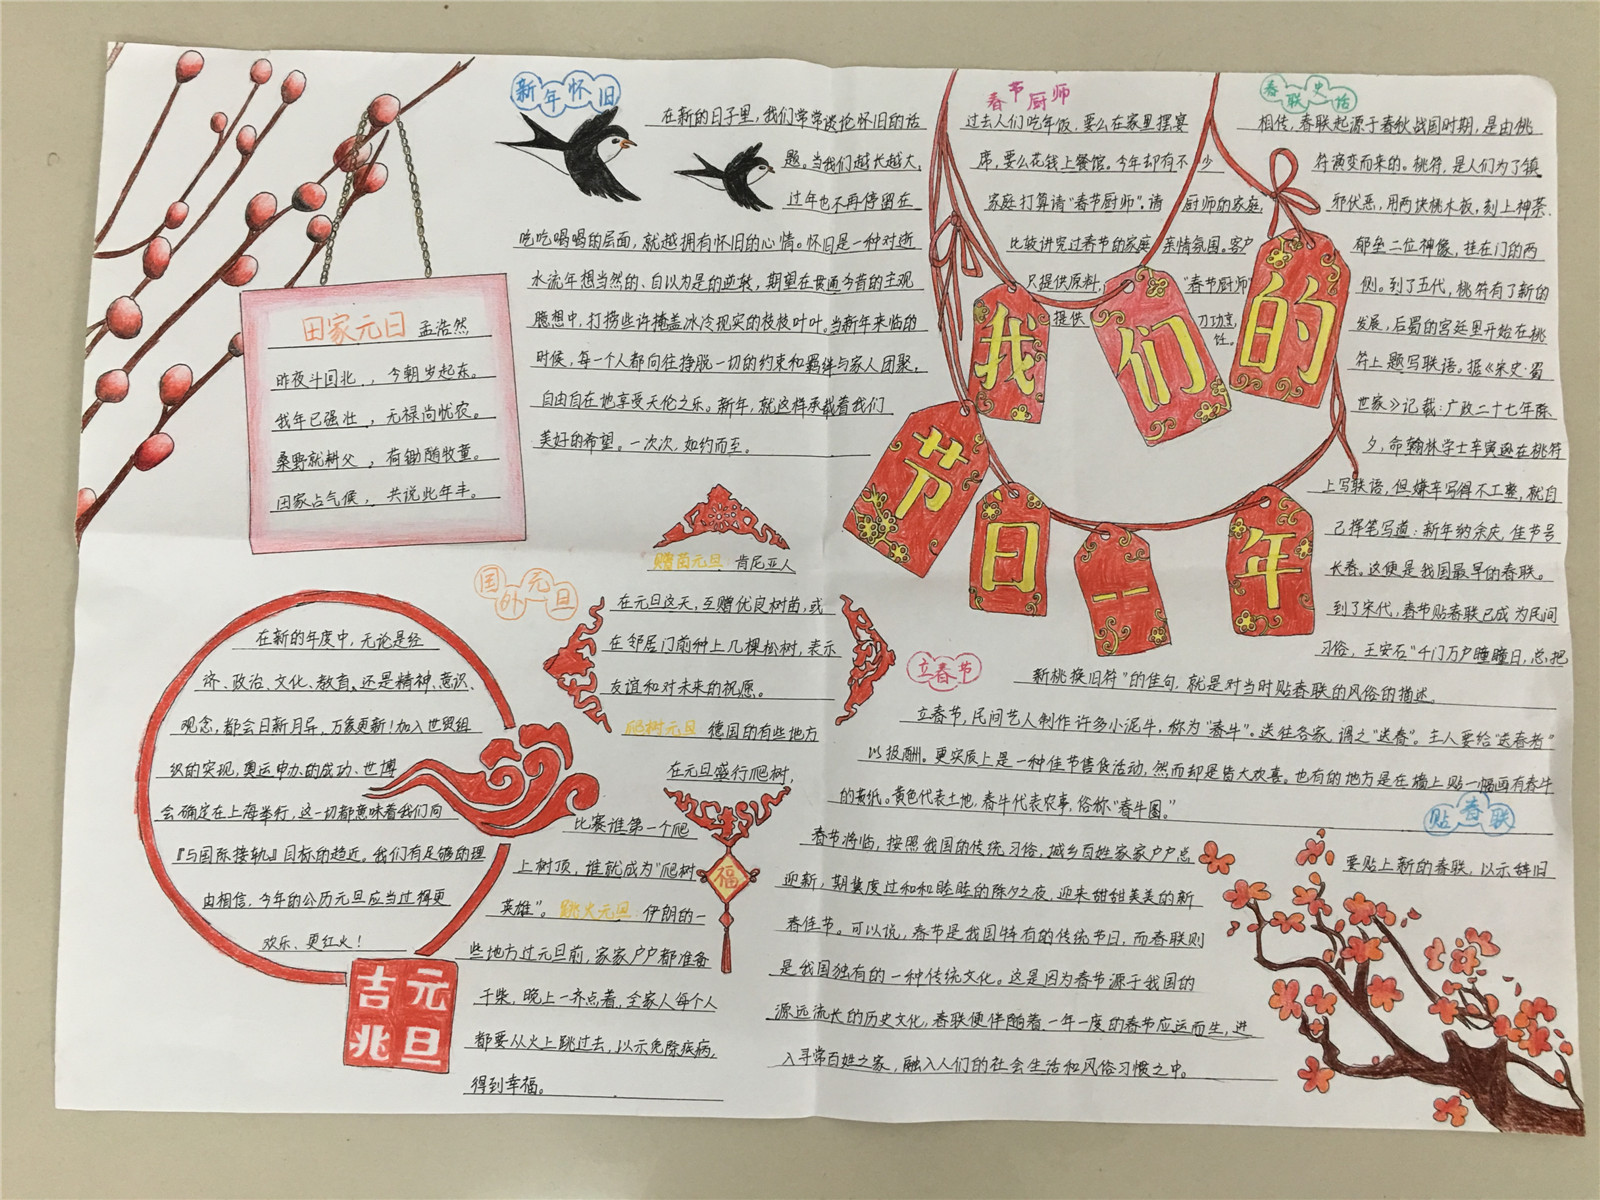 田家元日 孟浩然
昨夜斗回北，今朝岁起东。
我年已强壮，无禄尚忧农。
桑野就耕父，荷锄随牧童。
田家占气候，共说此年丰。
新年怀旧
在新的日子里，我们常常谈论怀旧的话
题。当我们越长越大，
过年也不再停留在
吃吃喝喝的层面，就越拥有怀旧的心情。怀旧是一种对逝
水流年想当然的、自以为是的逆转，期望在贯通今昔的主观
臆想中，打捞些许掩盖冰冷现实的枝枝叶叶。当新年来临的
时候，每一个人都向往挣脱一切的约束和羁绊与家人团聚，
自由自在地享受天伦之乐。新年，就这样承载着我们
美好的希望。一次次，如约而至。
国外元旦
赠苗元旦：肯尼亚人
在元旦这天，互赠优良树苗，或
在邻居门前种上几棵松树，表示
友谊和对未来的祝愿。
爬树元旦 德国的有些地方
在元旦盛行爬树，
比赛谁第一个爬
上树顶，谁就成为“爬树
英雄”。跳火元旦：伊朗的一
些地方过元旦前，家家户户都准备
干柴，晚上一齐点着，全家人每个人
都要从火上跳过去，以示免除疾病，
得到幸福。
福
在新的年度中，无论是经
济、政治、文化、教育、还是精神、意识、
观念，都会日新月异，万象更新！加入世贸组
织的实现，奥运申办的成功、世博
会确定在上海举行，这一切都意味着我们向
『与国际接轨』目标的趋近。我们有足够的理
由相信，今年的公历元旦应当过得更
欢乐、更红火！
吉元
兆旦
春节厨师
过去人们吃年饭，要么在家里摆宴
席，要么花钱上餐馆。今年却有不少
家庭打算请“春节厨师”。请 厨师的家庭，
比较讲究过春节的家庭 亲情氛围。客户
只提供原料， “春节厨师”
提供 刀功烹
饪。
我们的
节日一年
春联史话
相传，春联起源于春秋战国时期，是由桃
符演变而来的。桃符，是人们为了镇
邪伏恶，用两块桃木板，刻上神荼、
郁垒二位神像，挂在门的两
侧。到了五代，桃符有了新的
发展，后蜀的宫廷里开始在桃
符上题写联语。据《宋史·蜀
世家》记载：广政二十七年除
夕，命翰林学士辛寅逊在桃符
上写联语，但嫌辛写得不工整，就自
己挥笔写道：新年纳余庆，佳节号
长春。这便是我国最早的春联。
到了宋代，春节贴春联已成为民间
习俗，王安石“千门万户曈曈日，总把
新桃换旧符”的佳句，就是对当时贴春联的风俗的描述。
立春节
立春节，民间艺人制作许多小泥牛，称为“春牛”。送往各家，谓之“送春”。主人要给“送春者”
以报酬。更实质上是一种佳节售货活动，然而却是皆大欢喜。也有的地方是在墙上贴一幅画有春牛
的黄纸。黄色代表土地，春牛代表农事，俗称“春牛图。”
贴春联
春节将临，按照我国的传统习俗，城乡百姓家家户户总 要贴上新的春联，以示辞旧
迎新，期冀度过和和睦睦的除夕之夜，迎来甜甜美美的新
春佳节。可以说，春节是我国特有的传统节日，而春联则
是我国独有的一种传统文化。这是因为春节源于我国的
源远流长的历史文化，春联便伴随着一年一度的春节应运而生，进
入寻常百姓之家，融入人们的社会生活和风俗习惯之中。